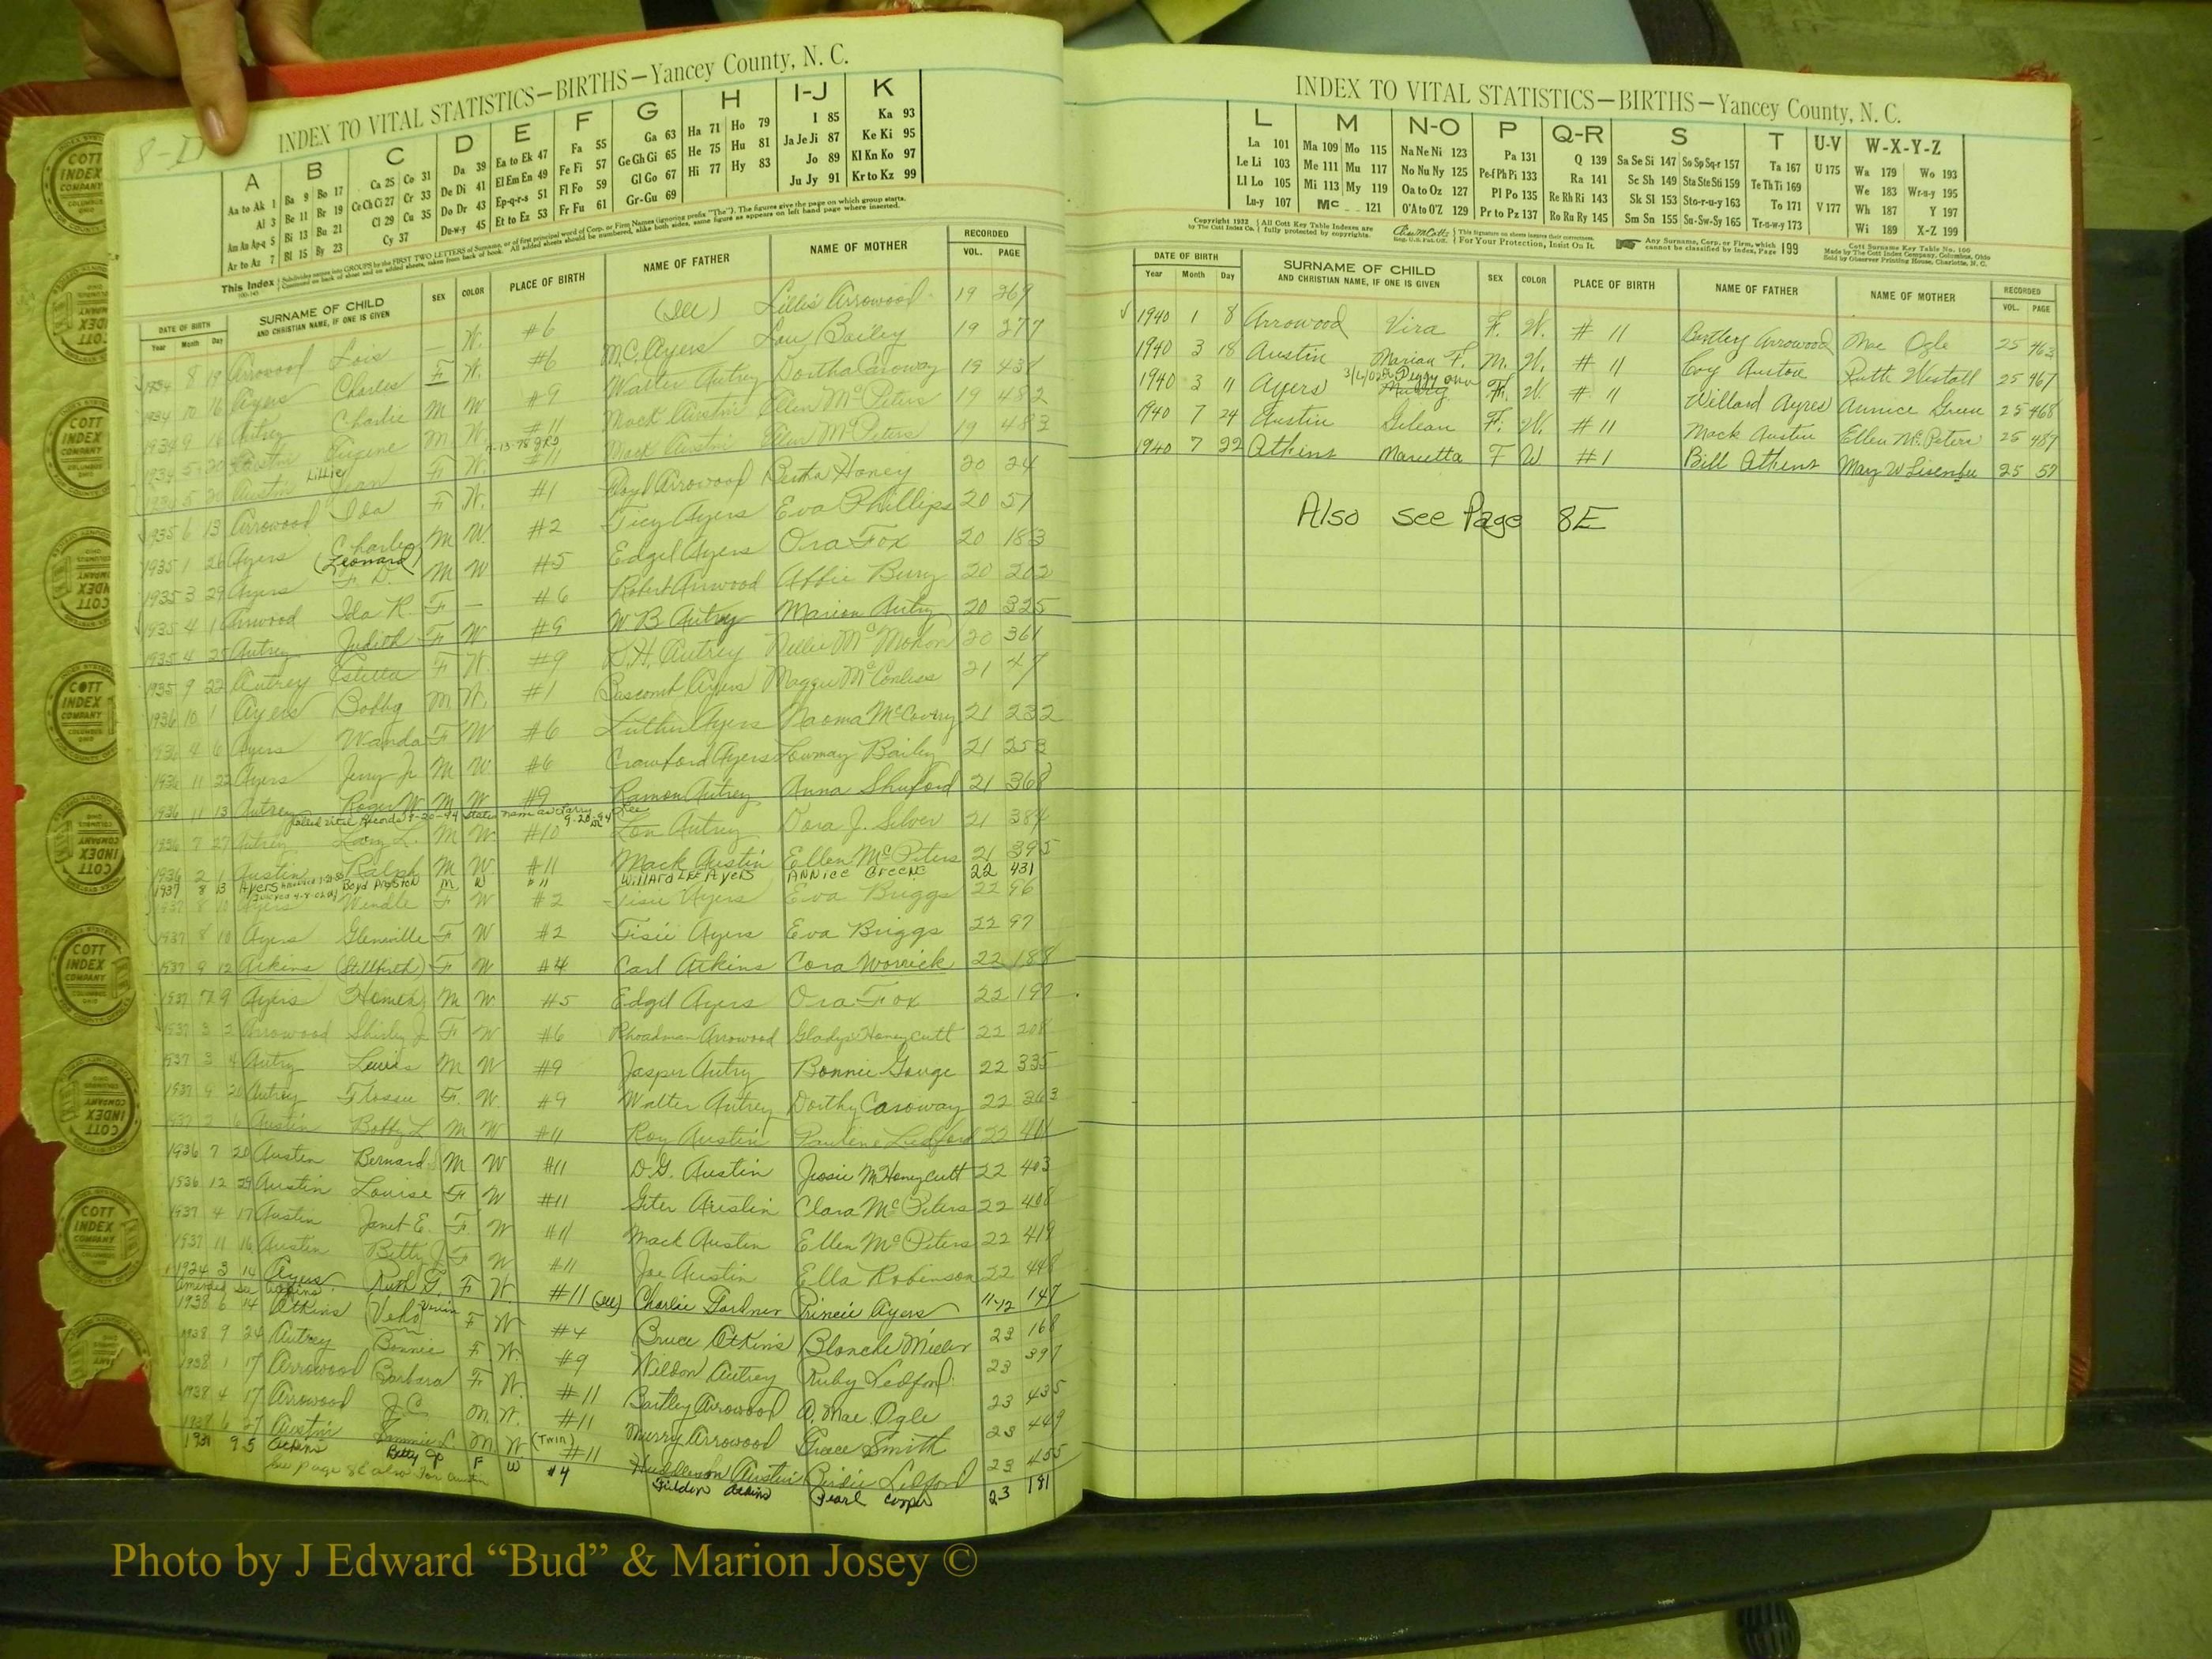 8-D
INDEX TO VITAL STATISTICS—BIRTHS—Yancey County, N. C.
A B C D E F G H I-J K
Aa to Ak 1 Ba 9 Bo 17 Ca 25 Co 31 Da 39 Ea to Ek 47 Fa 55 Ga 63 Ha 71 Ho 79 I 85 Ka 93
Al 3 Be 11 Br 19 Ce Ch Ci 27 Cr 33 De Di 41 El Em En 49 Fe Fi 57 Ge Gh Gi 65 He 75 Hu 81 Ja Je Ji 87 Ke Ki 95
Am An Ap-q 5 Bi 13 Bu 21 Cl 29 Cu 35 Do Dr 43 Ep-q-r-s 51 Fl Fo 59 Gl Go 67 Hi 77 Hy 83 Jo 89 Kl Kn Ko 97
Ar to Az 7 Bl 15 By 23 Cy 37 Du-w-y 45 Et to Ez 53 Fr Fu 61 Gr-Gu 69 Ju Jy 91 Kr to Kz 99
DATE OF BIRTH SURNAME OF CHILD SEX COLOR PLACE OF BIRTH NAME OF FATHER NAME OF MOTHER RECORDED
Year Month Day AND CHRISTIAN NAME, IF ONE IS GIVEN VOL. PAGE
1934 8 19 Arrowood Lois — W. #6 (Ill) Lillie Arrowood 19 269
1934 10 16 Ayers Charles F W. #6 M.C. Ayers Lou Bailey 19 277
1934 9 16 Autrey Charlie M W #9 Walter Autrey Dortha Caroway 19 438
1934 5 20 Austin Eugene M. W. #11 Mack Austin Ellen McPeters 19 482
1934 5 20 Austin Lillie Jean F W. #11 Mack Austin Ellen McPeters 19 483
1935 6 13 Arrowood Ida F W. #1 Floyd Arrowood Bertha Honey 20 24
1935 1 26 Ayers Charles (Leonard) M W. #2 Ticy Ayers Eva Phillips 20 51
1935 3 29 Ayers F D M W #5 Edgel Ayers Ora Fox 20 183
1935 4 1 Arrwood Ida R. F — #6 Robert Arrwood Abbie Burry 20 202
1935 4 25 Autrey Judith F W #9 W B Autrey Marion Autry 20 325
1935 9 22 Autrey Estella F W. #9 S.H. Autrey Nellie McMohon 20 361
1936 10 1 Ayers Bobby M W. #1 Bascomb Ayers Maggie McConless 21 47
1936 4 6 Ayers Wanda F W #6 Luther Ayers Naoma McCoury 21 232
1936 11 22 Ayers Jerry Jr M W. #6 Crawford Ayers Lowmay Bailey 21 253
1936 11 13 Autrey Roger W. M W #9 Ramon Autrey Anna Shuford 21 368
1936 7 27 Autrey Larry L. M W. #10 Lon Autrey Dora J. Silver 21 384
1936 2 1 Austin Ralph M W. #11 Mack Austin Ellen McPeters 21 395
1937 8 13 Ayers Boyd Preston M W #11 Willard Lee Ayers Annice Greene 22 431
1937 8 10 Ayers Wendle F W #2 Tisie Ayers Eva Briggs 22 96
1937 8 10 Ayers Glenville F W #2 Tisie Ayers Eva Briggs 22 97
1937 9 12 Atkins (Stillbirth) F W #4 Carl Atkins Cora Worrick 22 188
1937 9 Ayers Homer M W. #5 Edgel Ayers Ora Fox 22 197
1937 3 2 Arrowood Shirley J. F W #6 Rhoadman Arrowood Gladys Honeycutt 22 208
1937 3 4 Autry Lewis M W #9 Jasper Autry Bonnie Gouge 22 335
1937 9 20 Autrey Flossie F. W. #9 Walter Autrey Dorthy Caroway 22 363
1937 2 6 Austin Bobby L M W #11 Roy Austin Pauline Ledford 22 401
1936 7 20 Austin Bernard M W #11 D.G. Austin Jessie M Honeycutt 22 403
1936 12 29 Austin Louise F W #11 Geter Austin Clara McPeters 22 408
1937 4 17 Austin Janet E. F. W #11 Mack Austin Ellen McPeters 22 419
1937 11 16 Austin Betty J F W #11 Joe Austin Ella Robinson 22 448
1924 3 14 Ayers Ruth G. F W. #11 (Ill) Charlie Gardner Princie Ayers 11-12 147
1938 6 14 Atkins Velo F W #4 Bruce Atkins Blanche Miller 23 168
1938 9 24 Autrey Bonnie F W. #9 Weldon Autrey Ruby Ledford 23 397
1938 1 17 Arrowood Barbara F W. #11 Bartley Arrowood O. Mae Ogle 23 435
1938 4 17 Arrowood J.C. M. W. #11 Murry Arrowood Grace Smith 23 449
1938 6 27 Austin L. M. W. (Twin) #11 Austin Birdie Ledford 23 455
1938 9 5 Atkins Betty Jo F W #4 Atkins Pearl Cooper 23 181
See page 8E also for Austin
INDEX TO VITAL STATISTICS—BIRTHS—Yancey County, N. C.
L M N-O P Q-R S T U-V W-X-Y-Z
La 101 Ma 109 Mo 115 Na Ne Ni 123 Pa 131 Q 139 Sa Se Si 147 So Sp Sq-r 157 Ta 167 U 175 Wa 179 Wo 193
Le Li 103 Me 111 Mu 117 No Nu Ny 125 Pe-f Ph Pi 133 Ra 141 Sc Sh 149 Sta Ste Sti 159 Te Th Ti 169 We 183 Wr-u-y 195
Ll Lo 105 Mi 113 My 119 Oa to Oz 127 Pl Po 135 Re Rh Ri 143 Sk Sl 153 Sto-r-u-y 163 To 171 V 177 Wh 187 Y 197
Lu-y 107 Mc 121 O'A to O'Z 129 Pr to Pz 137 Ro Ru Ry 145 Sm Sn 155 Su-Sw-Sy 165 Tr-u-w-y 173 Wi 189 X-Z 199
Copyright 1932 All Cott Key Table Indexes are
by The Cott Index Co. fully protected by copyrights. For Your Protection, Insist On It. Any Surname, Corp. or Firm, which cannot be classified by Index, Page 199
DATE OF BIRTH SURNAME OF CHILD SEX COLOR PLACE OF BIRTH NAME OF FATHER NAME OF MOTHER RECORDED
Year Month Day AND CHRISTIAN NAME, IF ONE IS GIVEN VOL. PAGE
1940 1 8 Arrowood Vira F. W. # 11 Bartley Arrowood Mae Ogle 25 463
1940 3 18 Austin Marian F. M. W. # 11 Coy Austin Ruth Westall 25 467
1940 3 11 Ayers Peggy Ann F. W. # 11 Willard Ayres Annice Green 25 468
1940 7 24 Austin Gilean F. W. # 11 Mack Austin Ellen McPeters 25 489
1940 7 22 Atkins Marietta F W #1 Bill Atkins Mary W Lisenbee 25 57
Also see Page 8E
COTT INDEX COMPANY
Photo by J Edward “Bud” & Marion Josey ©